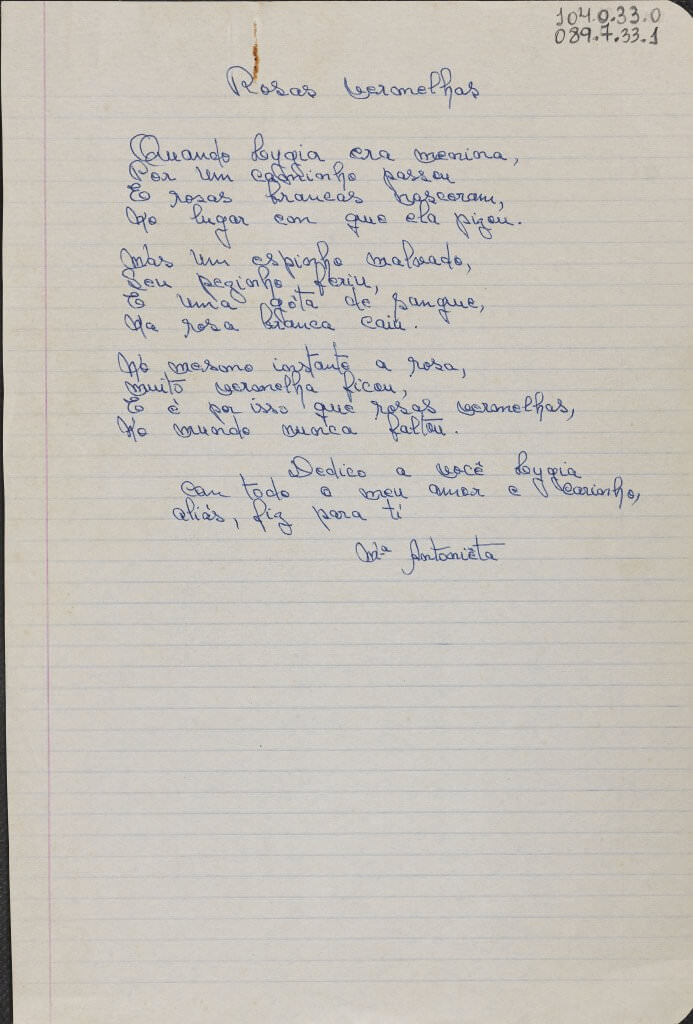 104.0.33.0
089.7.33.1
Rosas vermelhas
Quando Lygia era menina,
Por um caminho passou
E rosas brancas nasceram,
No lugar em que ela pizou.
Mas um espinho malvado,
Seu pezinho feriu,
E uma gôta de sangue,
Na rosa branca caiu.
No mesmo instante a rosa,
muito vermelha ficou,
E é por isso que rosas vermelhas,
No mundo nunca faltou.
Dedico a você Lygia
com todo o meu amor e carinho,
aliás, fiz para ti
Mª Antoniêta